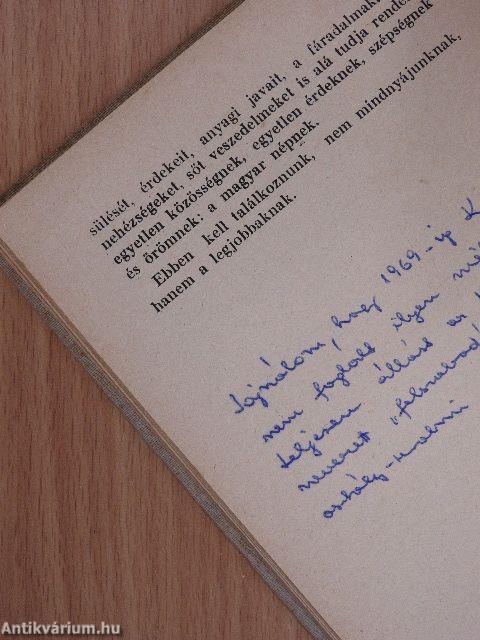 sülését, érdekeit, anyagi javait, a fáradalmak
nehézségeket, sőt veszedelmeket is alá tudja rende
egyetlen közösségnek, egyetlen érdeknek, szépségnek
és örömnek: a magyar népnek.
Ebben kell találkoznunk, nem mindnyájunknak,
hanem a legjobbaknak.
Sajnálom, hogy 1969-ig K
nem foglalt ilyen mé
teljesen állást az
nevezett "felszabad
osztály-uralmi
Antikvárium.hu